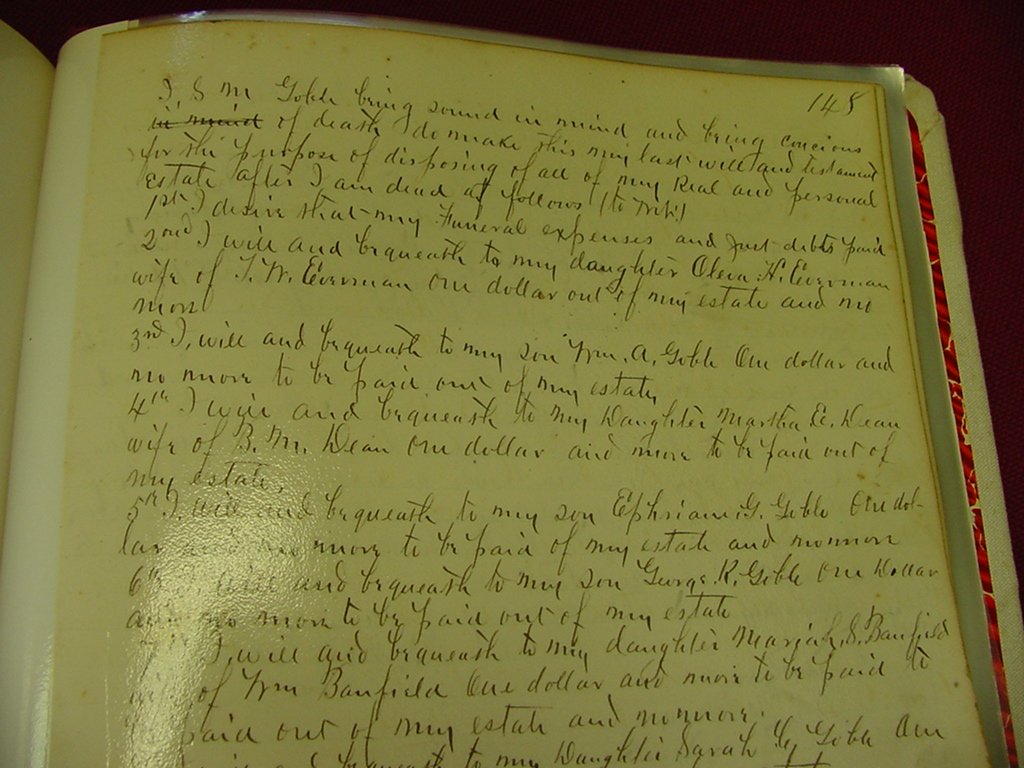 148
I, S M Goble being sound in mind and being concious
in mind of death I do make this my last will and testament
for the purpose of disposing of all of my Real and personal
Estate after I am dead as follows (to wit)
1st I desire that my Funeral expenses and just debts paid
2nd I will and bequeath to my daughter Oleva H. Everman
wife of T. W. Everman One dollar out of my estate and no
more
3rd I, will and bequeath to my son Wm. A. Goble One dollar and
no more to be paid out of my estate
4th I will and bequeath to my Daughter Martha E. Dean
wife of B. M. Dean One dollar and more to be paid out of
my estate.
5th I, will and bequeath to my son Ephriam G. Goble One dol-
lar and no more to be paid of my estate and no more
6th I will and bequeath to my son George R. Goble One Dollar
and no more to be paid out of my estate
7th I, will and bequeath to my daughter Mariah S. Banfield
wife of Wm Banfield One dollar and more to be paid to
be paid out of my estate and no more.
and bequeath to my Daughter Sarah Goble One